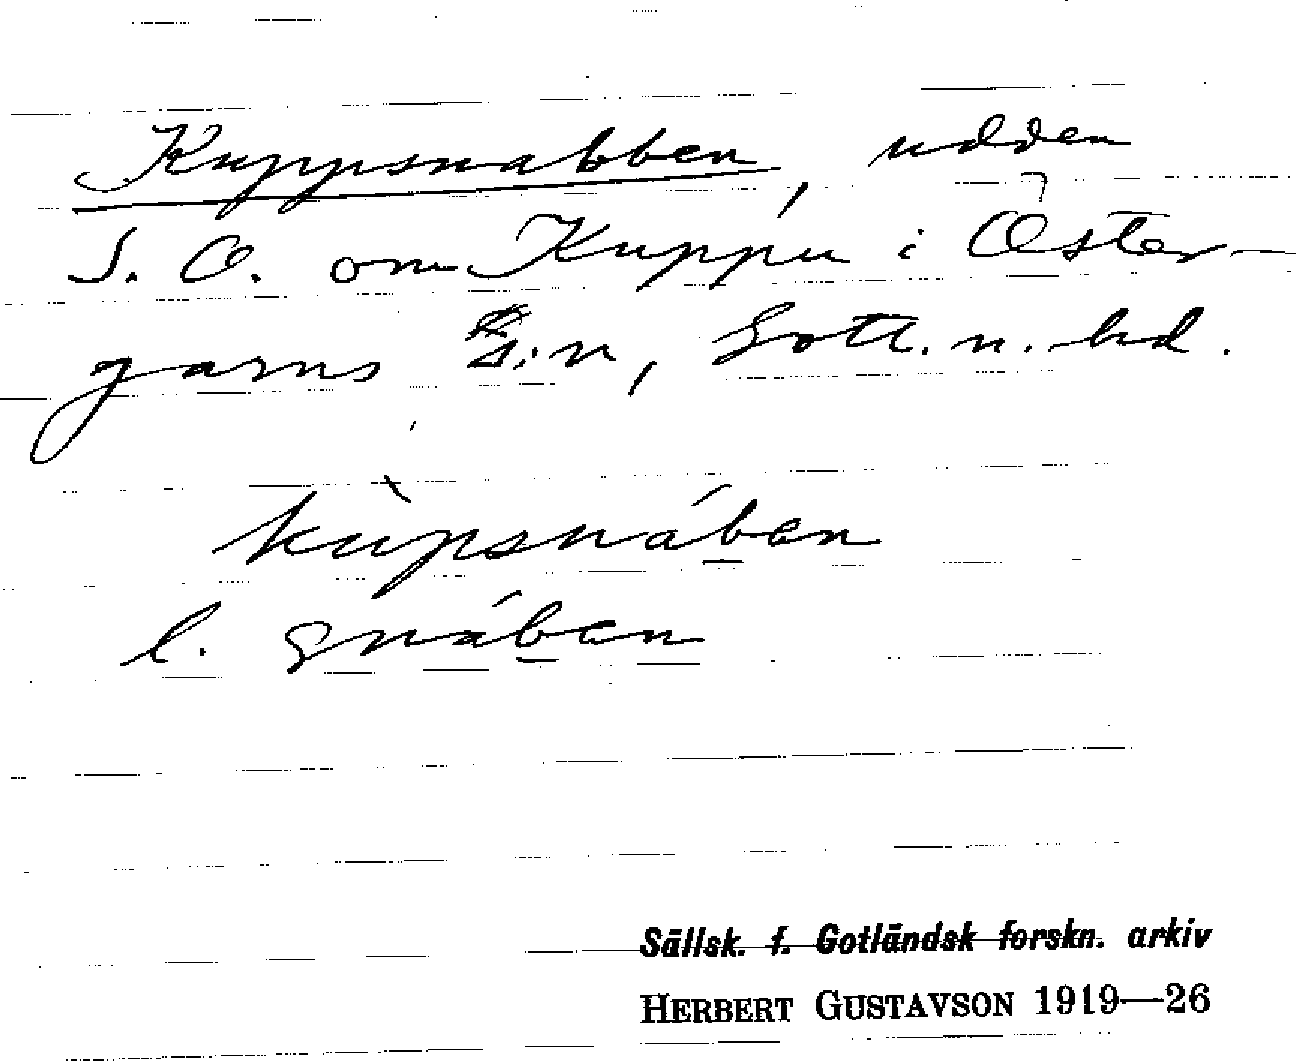 Kuppsnabben, udden
S. O. om Kuppu i Öster-
garns s:n, Gotl. n. hd.
kùpsnáben
l. gnáben
Sällsk. f. Gotländsk forskn. arkiv
HERBERT GUSTAVSON 1919—26